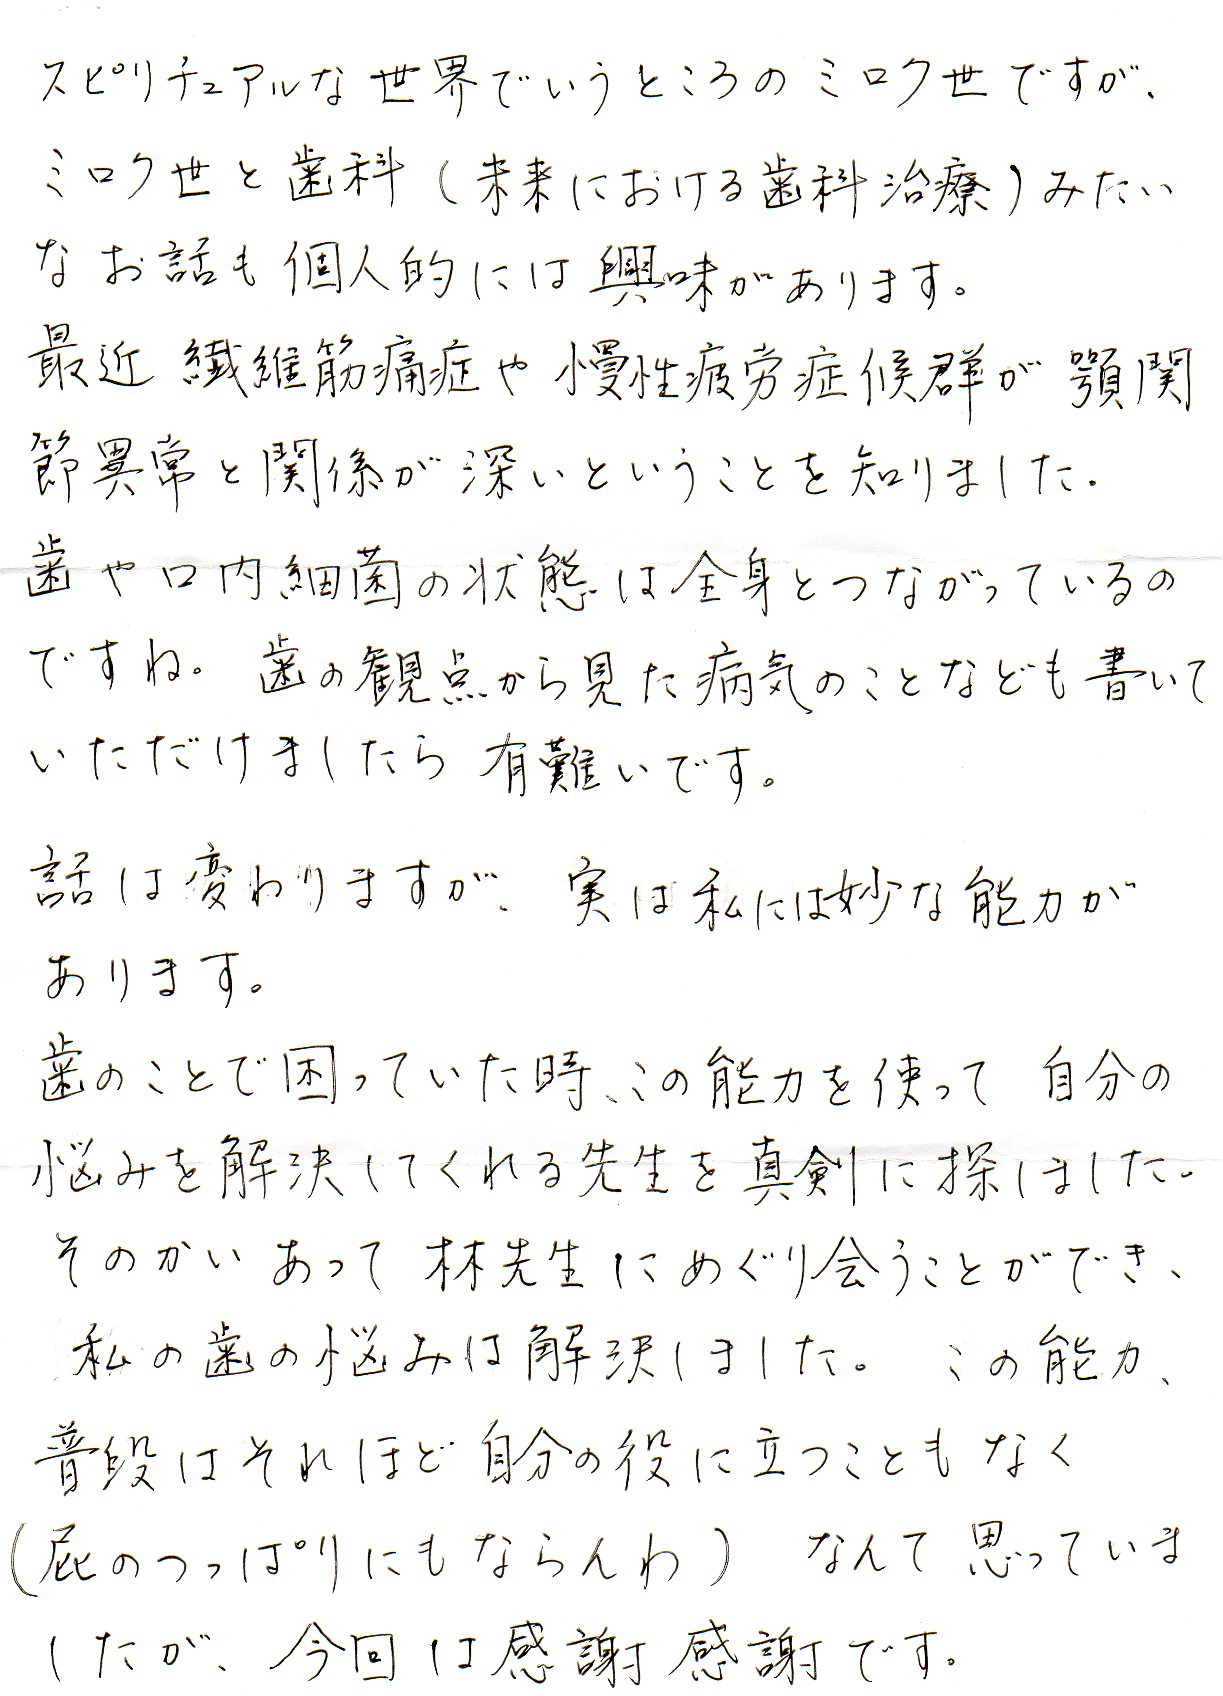 スピリチュアルな世界でいうところのミロク世ですが、
ミロク世と歯科(未来における歯科治療)みたい
なお話も個人的には興味があります。
最近 繊維筋痛症や慢性疲労症候群が顎関
節異常と関係が深いということを知りました。
歯や口内細菌の状態は全身とつながっているの
ですね。歯の観点から見た病気のことなども書いて
いただけましたら有難いです。
話は変わりますが、実は私には妙な能力が
あります。
歯のことで困っていた時、この能力を使って 自分の
悩みを解決してくれる先生を真剣に探しました。
そのかいあって 林先生にめぐり会うことができ、
私の歯の悩みは解決しました。この能力、
普段はそれほど自分の役に立つこともなく
(屁のつっぱりにもならんわ) なんて思っていま
したが、今回は感謝感謝です。